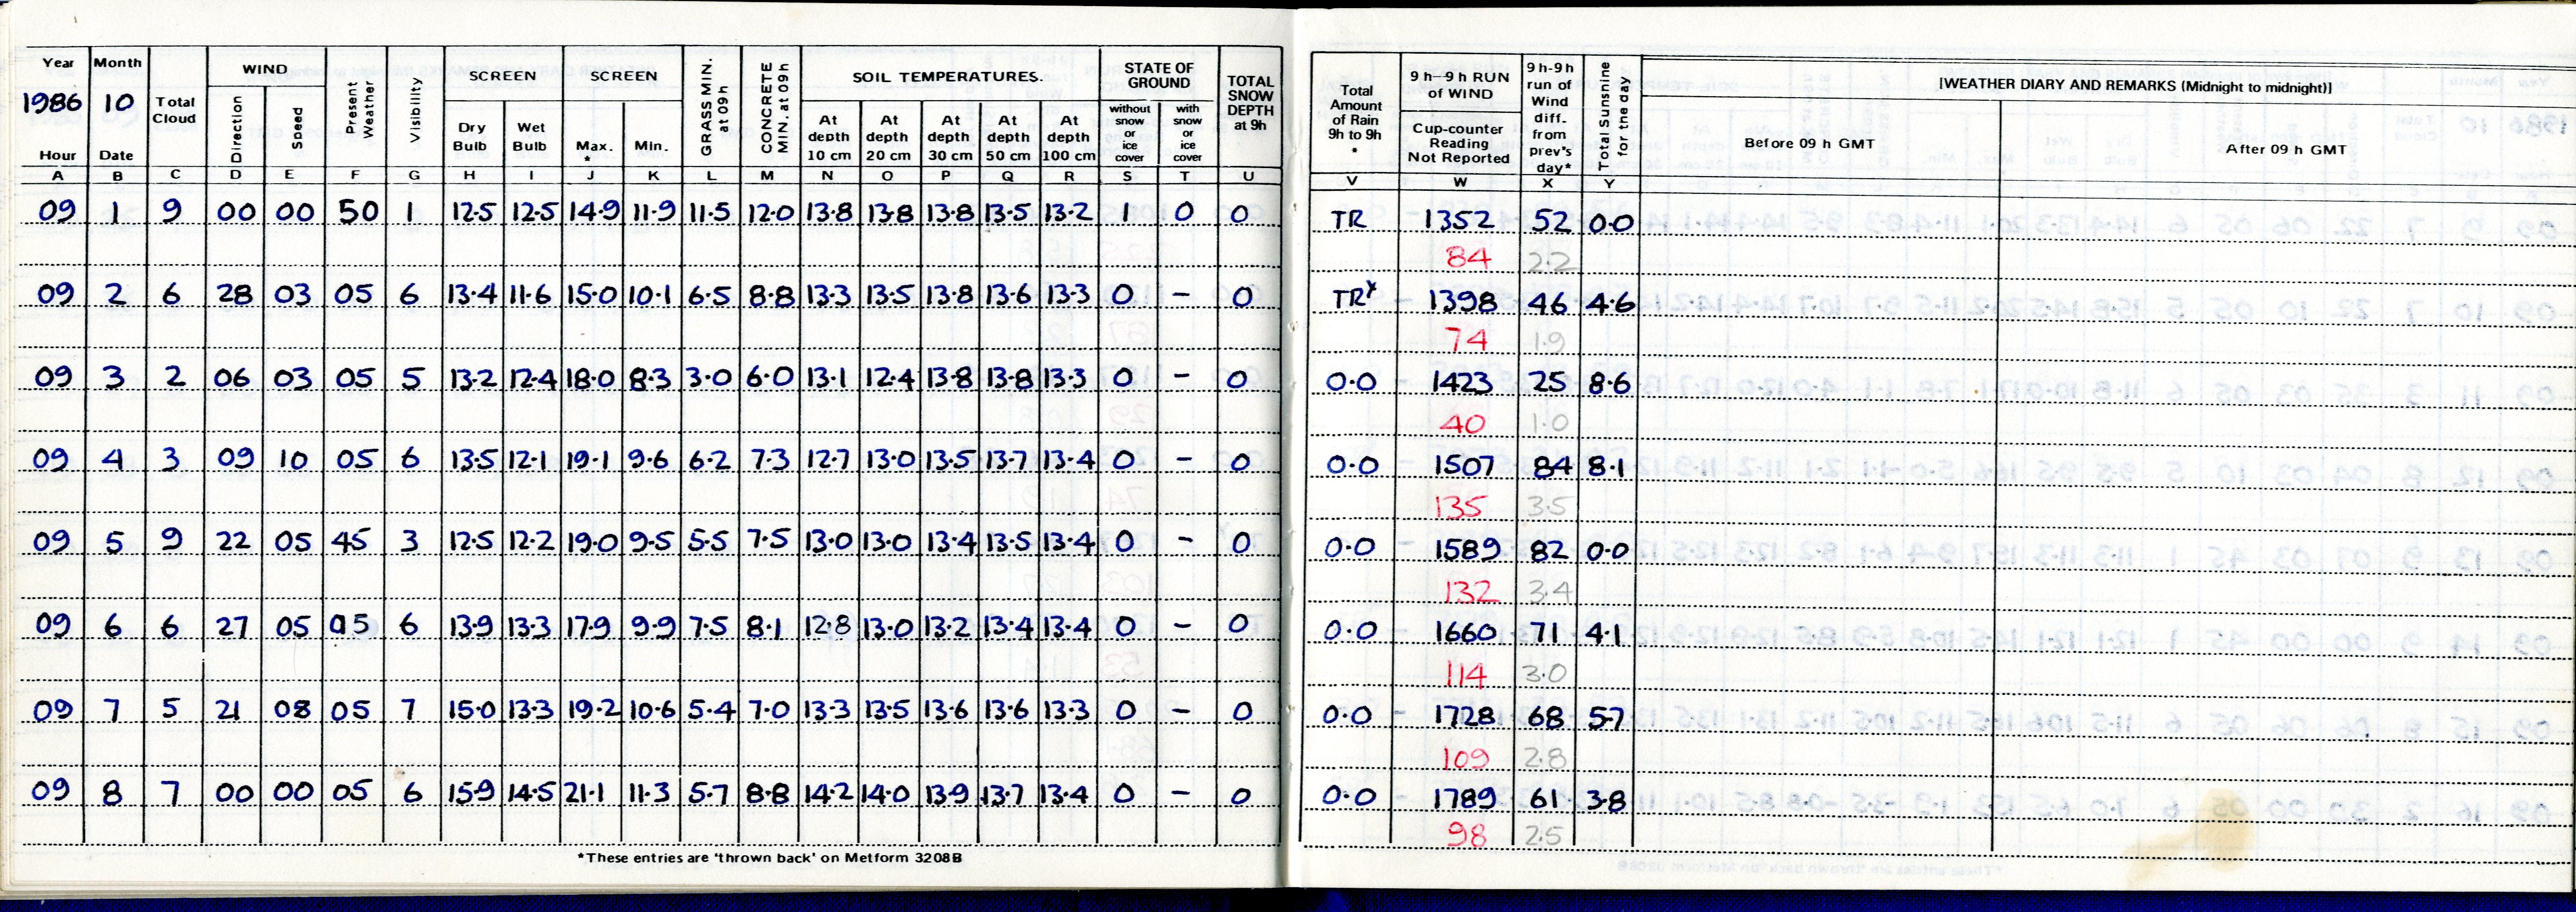 Year Month WIND SCREEN SCREEN GRASS MIN. at 09h CONCRETE MIN. at 09h SOIL TEMPERATURES. STATE OF GROUND TOTAL SNOW DEPTH at 9h
1986 10 Total Cloud Direction Speed Present Weather Visibility Dry Bulb Wet Bulb Max. * Min. At depth 10 cm At depth 20 cm At depth 30 cm At depth 50 cm At depth 100 cm without snow or ice cover with snow or ice cover
Hour Date
A B C D E F G H I J K L M N O P Q R S T U
09 1 9 00 00 50 1 12.5 12.5 14.9 11.9 11.5 12.0 13.8 13.8 13.8 13.5 13.2 1 0 0
09 2 6 28 03 05 6 13.4 11.6 15.0 10.1 6.5 8.8 13.3 13.5 13.8 13.6 13.3 0 - 0
09 3 2 06 03 05 5 13.2 12.4 18.0 8.3 3.0 6.0 13.1 12.4 13.8 13.8 13.3 0 - 0
09 4 3 09 10 05 6 13.5 12.1 19.1 9.6 6.2 7.3 12.7 13.0 13.5 13.7 13.4 0 - 0
09 5 9 22 05 45 3 12.5 12.2 19.0 9.5 5.5 7.5 13.0 13.0 13.4 13.5 13.4 0 - 0
09 6 6 27 05 05 6 13.9 13.3 17.9 9.9 7.5 8.1 12.8 13.0 13.2 13.4 13.4 0 - 0
09 7 5 21 08 05 7 15.0 13.3 19.2 10.6 5.4 7.0 13.3 13.5 13.6 13.6 13.3 0 - 0
09 8 7 00 00 05 6 15.9 14.5 21.1 11.3 5.7 8.8 14.2 14.0 13.9 13.7 13.4 0 - 0
*These entries are 'thrown back' on Metform 3208B
Total Amount of Rain 9h to 9h * 9h-9h RUN of WIND Cup-counter Reading Not Reported 9h-9h run of Wind diff. from prev's day* Total Sunsnine for the day [WEATHER DIARY AND REMARKS (Midnight to midnight)]
Before 09 h GMT After 09 h GMT
V W X Y
TR 1352 52 0.0
84 2.2
TR* 1398 46 4.6
74 1.9
0.0 1423 25 8.6
40 1.0
0.0 1507 84 8.1
135 3.5
0.0 1589 82 0.0
132 3.4
0.0 1660 71 4.1
114 3.0
0.0 1728 68 5.7
109 2.8
0.0 1789 61 3.8
98 2.5